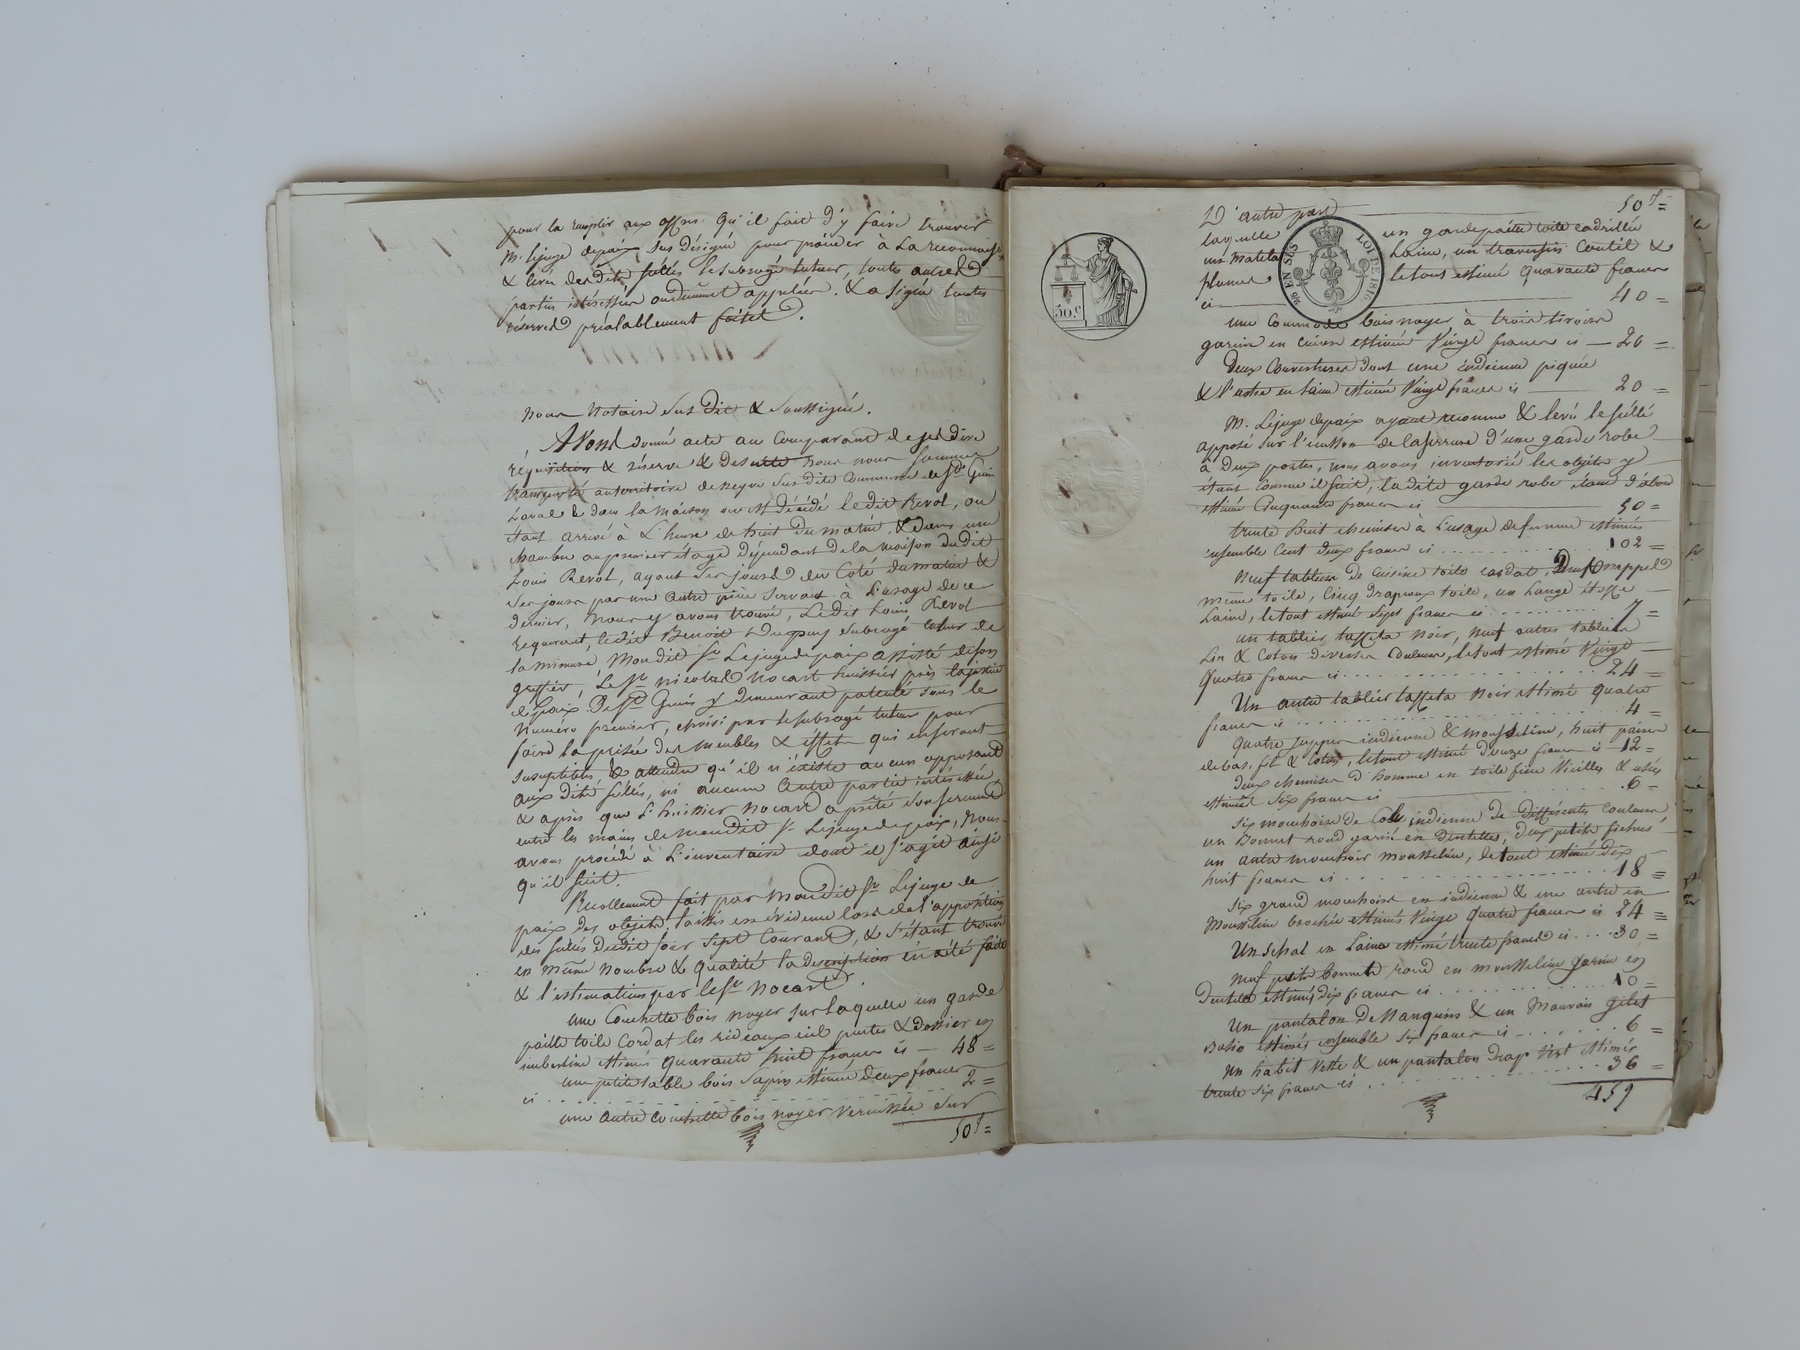 pour la remplir aux offres qu'il fait d'y faire trouver
Mr le juge de paix sus désigné pour procéder à la reconnaiss.
& levée des dits scellés le subrogé tuteur, toutes autres
parties intéressées ou dûment appelées. & a signé toutes
réserves préalablement faites.
Nous Notaire sus dit & soussigné.
Avons donné acte au Comparant de ses dire
réquisition & réserve & de suite nous nous sommes
transporté au territoire de susdite Commune de St Genis
Laval & dans la maison où est décédé le dit Revol, où
étant arrivé à l'heure de huit du matin, & dans une
chambre au premier étage dépendant de la maison du dit
Louis Revol, ayant ses jours du Coté du matin &
ses jours par une autre pièce servant à l'usage de ce
dernier, Nous y avons trouvé, le dit Louis Revol
requérant, le dit Benoit subrogé tuteur de
la mineure, Mondit Sr Le juge de paix assisté de son
greffier, Le Sr Nicolas Nocart huissier près la justice
de paix de St Genis y demeurant patenté sous le
Numéro premier, choisi par le subrogé tuteur pour
faire la prisée des meubles & effets qui en seront
susceptibles, & attendu qu'il n'existe aucun opposant
aux dits scellés, ni aucune autre partie intéressée
& après que l'huissier Nocart a prêté son serment
entre les mains de mondit Sr Le juge de paix, Nous
avons procédé à L'inventaire dont il s'agit ainsi
qu'il suit.
Recollement fait par Mondit Sr Le juge de
paix des objets laissés en évidence lors de l'apposition
des scellés du dit jour sept Courant, & s'étant trouvé
en même nombre & qualité la description en a été faite
& l'estimation par le Sr Nocart.
une Couchette bois noyer sur laquelle un garde
paille toile Cordat les rideaux ciel pentes & dossier en
estimés quarante huit francs ci — 48 =
une petite table bois sapin estimée deux francs
ci . . . . . . . . . . 2 =
une autre Couchette bois noyer vernissée sur
50 f =
D'autre part 50 f =
laquelle un garde paille toile cadrillée
un Matela laine, un traversin Coutil &
plumes le tous estimé quarante francs
ci 40 =
une Commode bois noyer à trois tiroirs
garnie en cuivre estimée Vingt francs ci — 20 =
Deux Couvertures dont une indienne piquée
& l'autre en laine estimée Vingt francs ci 20 =
Mr. Le juge de paix ayant reconnu & levé le scellé
apposé sur l'écusson de la serrure d'une garde robe
à deux portes, nous avons inventorié les objets y
étant Comme il suit, la dite garde robe étant d'abord
estimée Cinquante francs ci 50 =
trente huit chemises à l'usage de femme estimées
ensemble Cent deux francs ci . . . . 102 =
Neuf tabliers de cuisine toile cordat, neuf nappes
même toile, Cinq drapeaux toile, un Lange étoffe
Laine, le tout estimé sept francs ci . . . . 7 =
un tablier taffeta noir, neuf autres tabliers
Lin & Coton diverses Couleurs, le tout estimé Vingt
Quatre francs ci . . . . 24 =
Un autre tablier taffeta Noir estimé quatre
francs ci . . . . 4 =
Quatre juppes indienne & mousseline, huit paires
de bas, fil & Coton, le tout estimé douze francs ci 12 =
deux chemises d'homme en toile fine Vieilles & usées
estimées six francs ci . . . . 6 =
six mouchoirs de Cole indienne de différentes Couleurs
un Bonnet rond garni en dentelles, deux petits fichus
un autre mouchoir mousseline, le tout estimé dix
huit francs ci . . . . 18 =
six grand mouchoirs en indienne & une autre en
Mousseline brochée estimés Vingt quatre francs ci 24 =
Un schal en Laine estimé trente francs ci . . . . 30 =
Neuf petits bonnets rond en mousseline garnie en
Dentelles estimés dix francs ci . . . . 10 =
Un pantalon de Nanquins & un Mauvais gilet
estimés ensemble six francs ci . . . . 6 =
un habit Veste & un pantalon drap Vert estimés
trente six francs ci . . . . 36 =
459
50 c.
20 EN SUS
LOI DE 1816